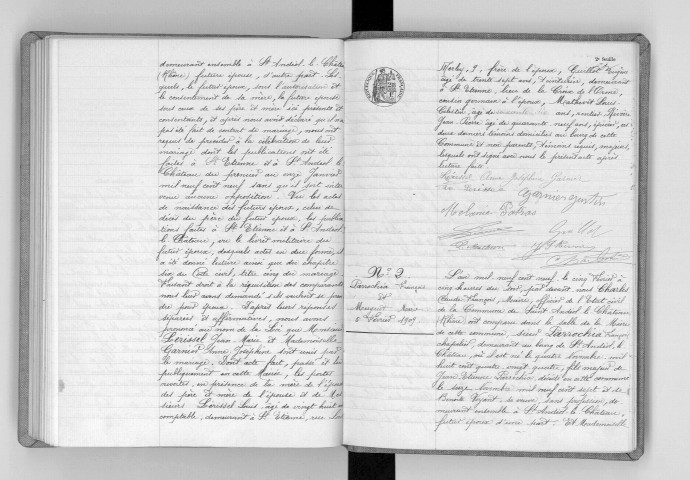 demeurant ensemble à St Andéol le Château
(Rhône) future épouse, d'autre part. Les
quels, le futur époux, sous l'autorisation et
le consentement de sa mère, la future épouse
sous ceux de ses père et mère ici présents et
consentants, et après nous avoir déclaré qu'il n'a
pas été fait de contrat de mariage, nous ont
requis de procéder à la célébration de leur
mariage dont les publications ont été
faites à St Etienne et à St Andéol le
Château du premier au onze Janvier
mil neuf cent neuf sans qu'il soit inter
venu aucune opposition. Vu les actes
de naissance des futurs époux, celui de
décès du père du futur époux, les publica
tions faites à St Etienne et à St Andéol
le Château, vu le livret militaire du
futur époux, desquels actes en due forme, il
a été donné lecture ainsi que du chapitre
six du Code civil, titre cinq du mariage
Faisant droit à la réquisition des comparants
nous leur avons demandé s'ils veulent se pren
dre pour époux. D'après leurs réponses
séparées et affirmatives, nous avons
prononcé au nom de la Loi que Monsieur
Lérissel Jean-Marie et Mademoiselle
Garnier Anne Joséphine sont unis par
le mariage. Dont acte fait, passé et lu
publiquement en cette Mairie, les portes
ouvertes, en présence de la mère de l'époux
des père et mère de l'épouse et de Mes
sieurs Lérissel Louis, âgé de vingt huit ans
comptable, demeurant à St Etienne, rue
2e feuille
3, frère de l'époux, Guillot Eugène
âgé de trente sept ans, demeurant
à St Etienne, lieu de la Croix de l'Orme,
cousin germain à l'époux, Louis
Célestin, âgé de ans, rentier
Jean Pierre âgé de quarante neuf ans, épicier, ces
deux derniers témoins domiciliés au bourg de cette
Commune et non parents, témoins requis, majeurs,
lesquels ont signé avec nous le présent acte après
lecture faite.
Garnier
Mélanie
Guillot
N° 2
Parrochia François
&
Muguet Marie
5 Février 1909
L'an mil neuf cent neuf, le cinq Février à
cinq heures du soir, par devant nous Charles
Claude François, Maire, officier de l'Etat civil
de la Commune de Saint Andéol le Château
(Rhône) ont comparu dans la salle de la Mairie
de cette commune, sieur Parrochia François,
chapelier, demeurant au bourg de St Andéol le
Château, où il est né le quatre novembre mil
huit cent quatre vingt quatre, fils majeur de
Jean Etienne Parrochia, décédé en cette commune
le seize mil neuf cent sept et de
Benoite sa veuve, sans profession, de
meurant ensemble à St Andéol le Château,
futur époux d'une part. Et Mademoiselle